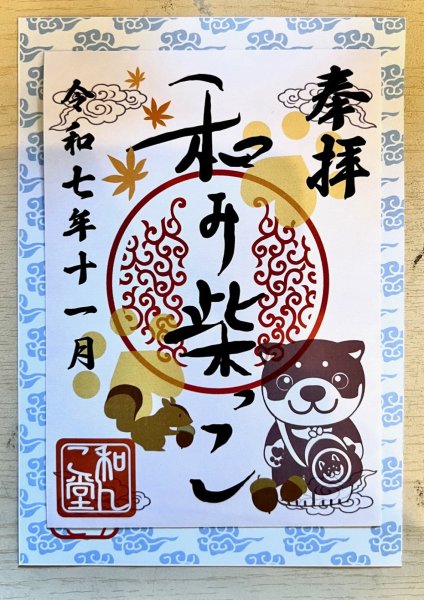 奉拝
和み柴っこ
令和七年十一月
和んこ堂